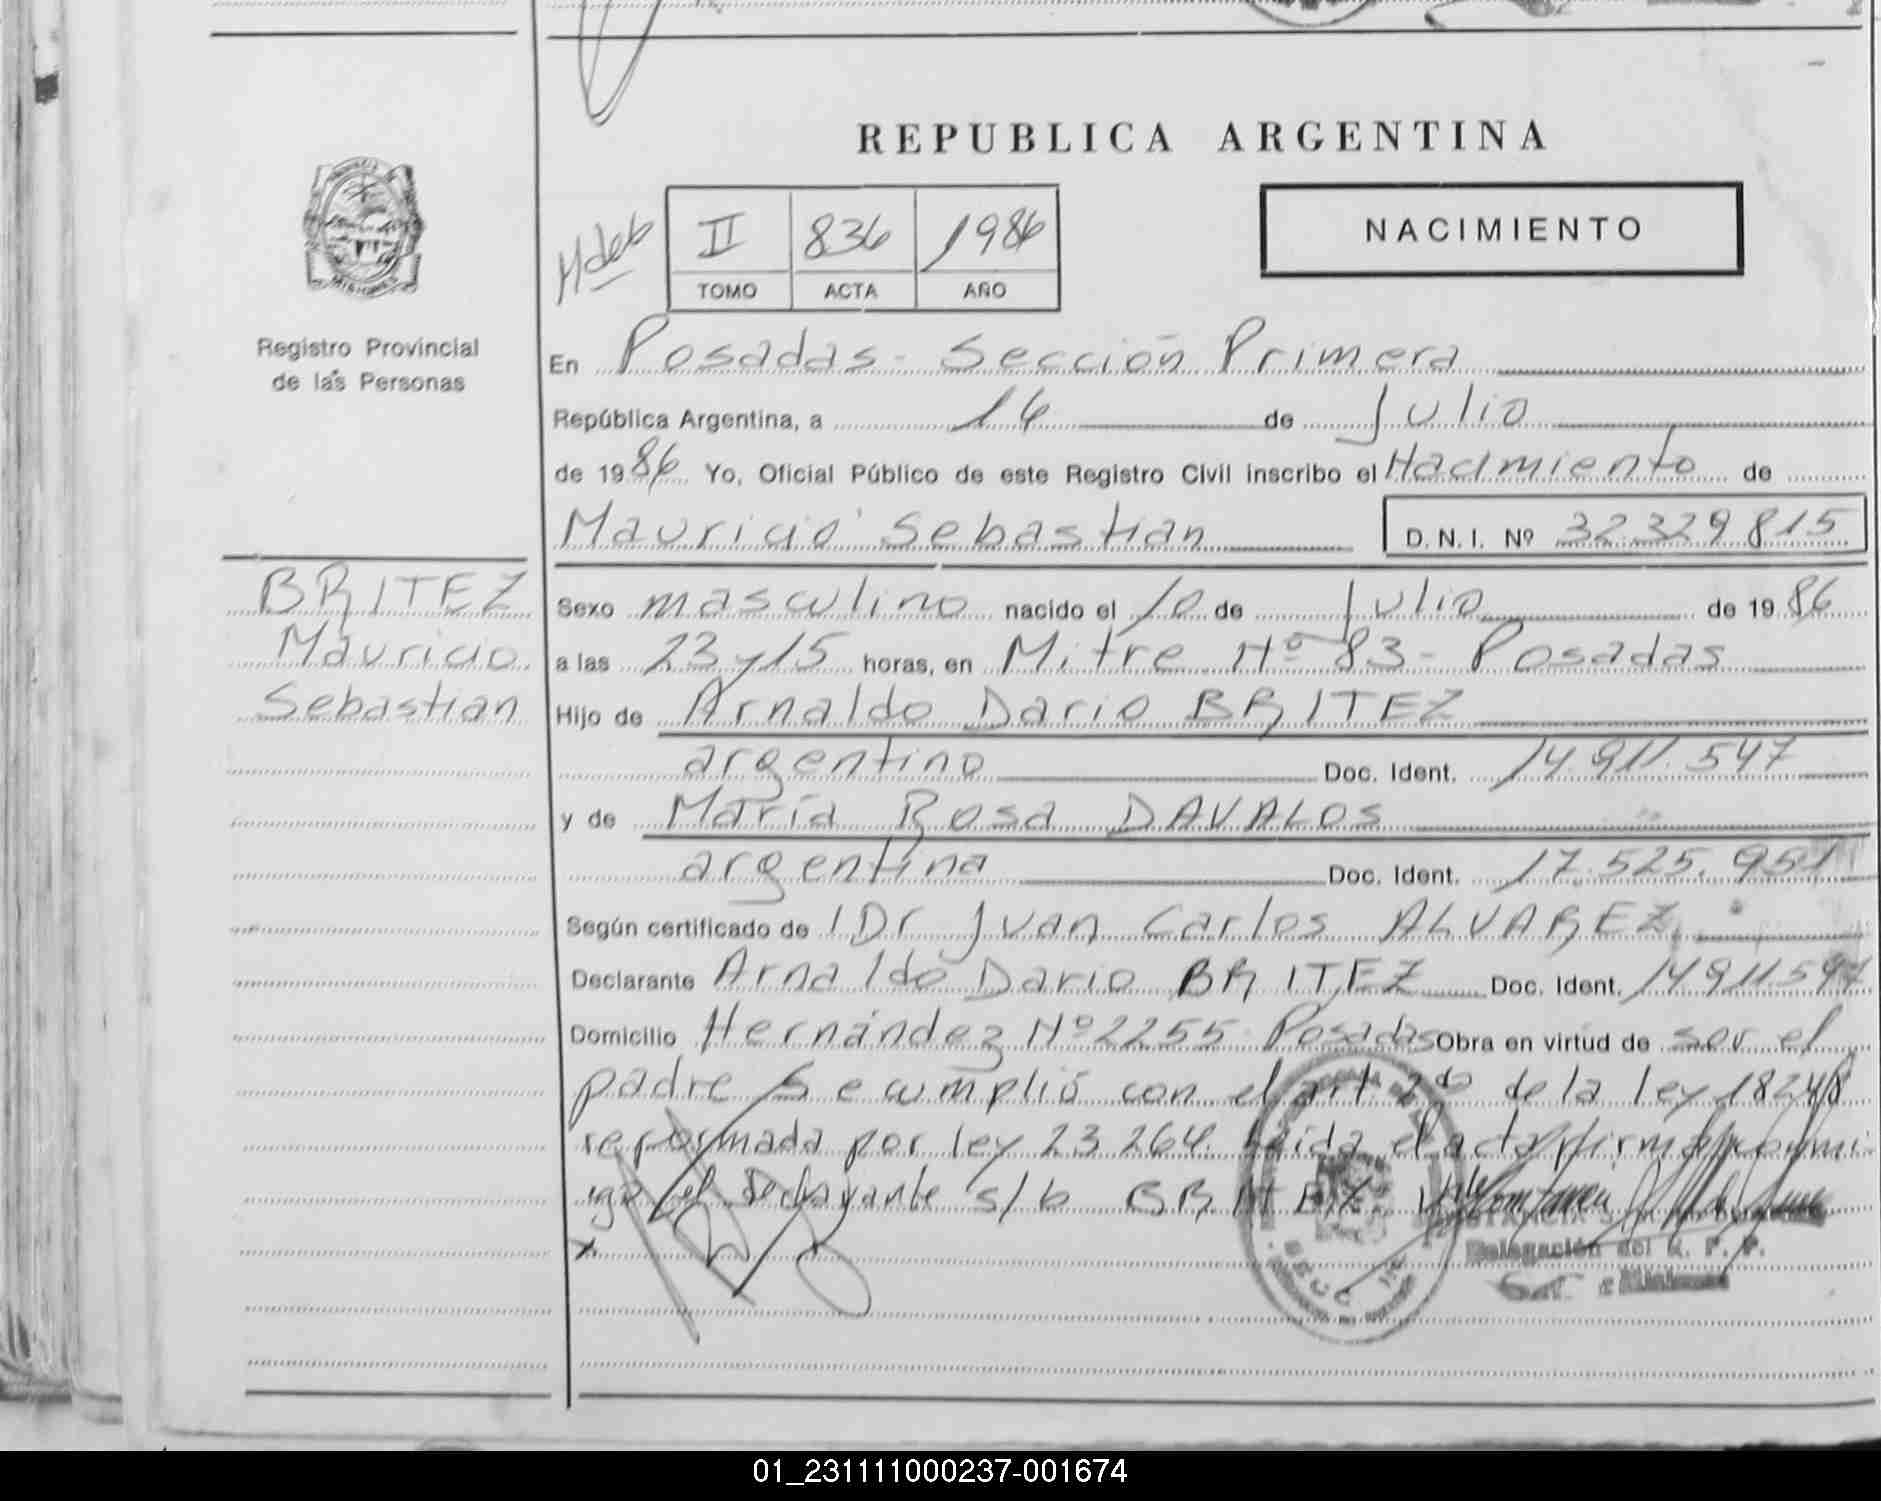 REPUBLICA ARGENTINA
NACIMIENTO
II 836 1986
TOMO ACTA AÑO
Registro Provincial
de las Personas
En Posadas - Sección Primera
República Argentina, a 14 de Julio
de 1986 Yo, Oficial Público de este Registro Civil inscribo el Nacimiento de
Mauricio Sebastian D.N.I. Nº 32329815
BRITEZ
Mauricio
Sebastian
Sexo masculino nacido el 10 de Julio de 1986
a las 23 y 15 horas, en Mitre Nº 83 - Posadas
Hijo de Arnaldo Dario BRITEZ
argentino Doc. Ident. 14.911.547
y de María Rosa DAVALOS
argentina Doc. Ident. 17.525.951
Según certificado de Dr Juan Carlos ALVAREZ
Declarante Arnaldo Dario BRITEZ Doc. Ident. 14911547
Domicilio Hernández Nº 2255 Posadas Obra en virtud de ser el
padre Se cumplió con el art. 2do de la ley 18248
reformada por ley 23264. Leida el acta firma conmi
igo el declarante s/b BRITEZ
Delegación del R. P. P.
01_231111000237-001674